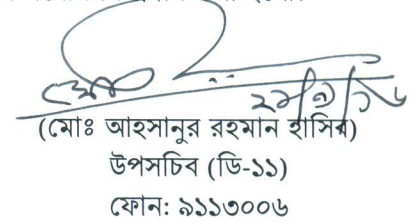 ২৮/৭/১৬
(মোঃ আহসানুর রহমান হাসিব)
উপসচিব (ডি-১১)
ফোন: ৯১১৩০০৬